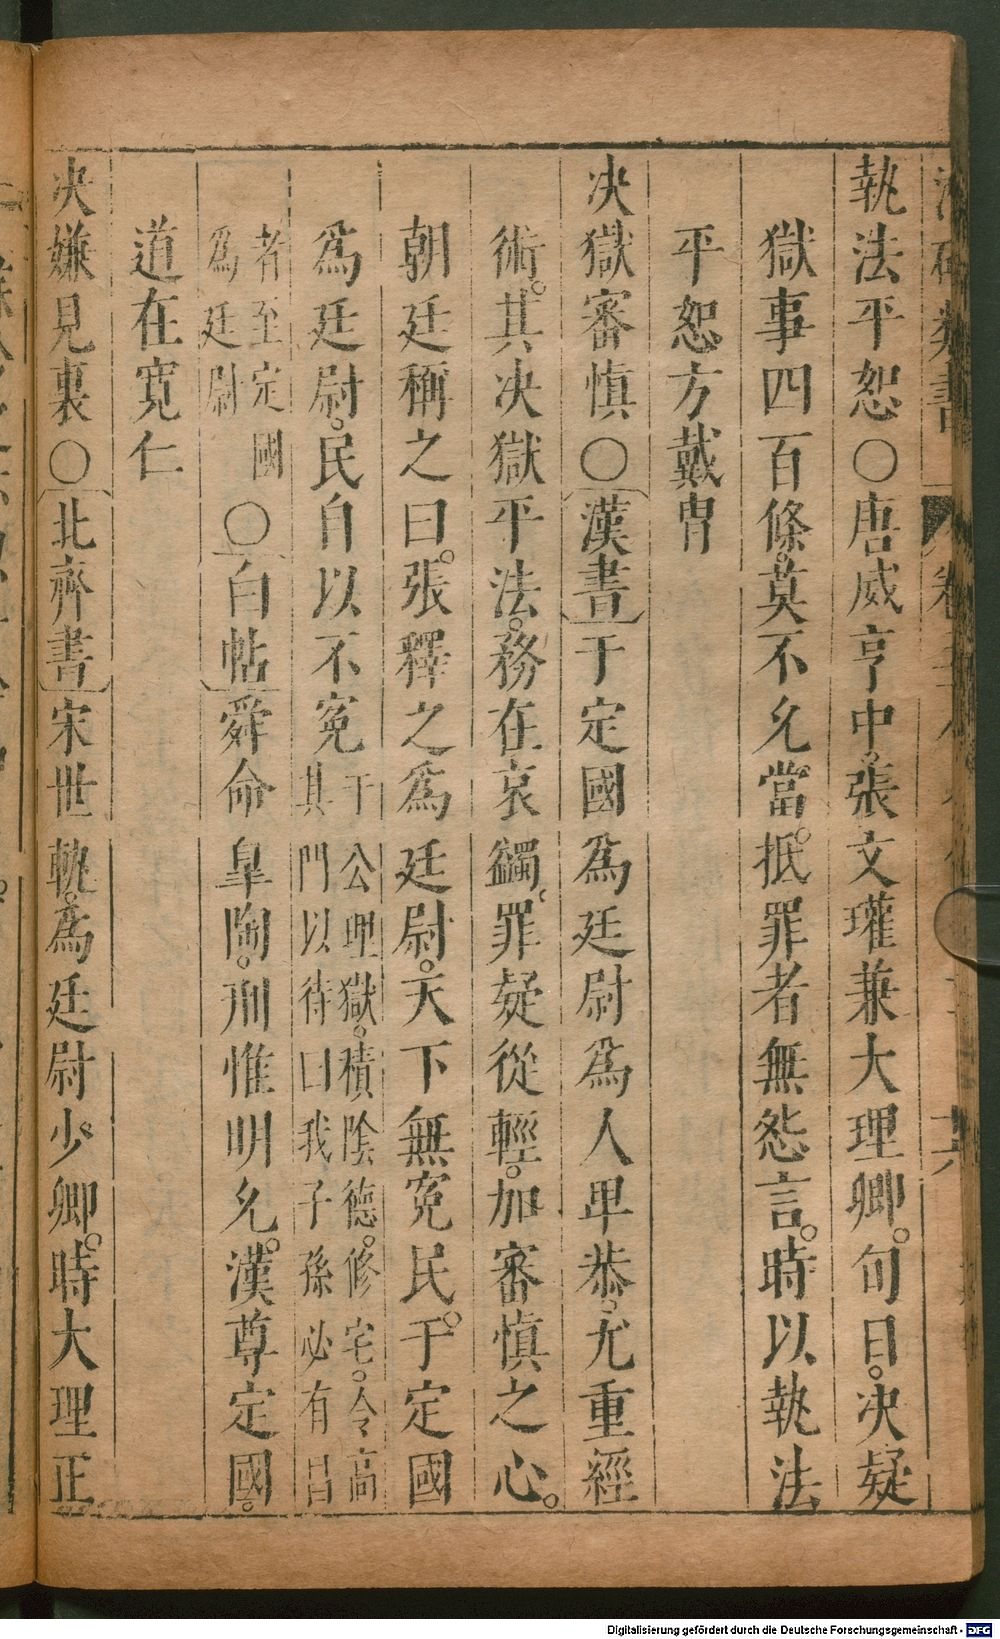 執法平恕○唐咸亨中張文瓘兼大理卿句日决疑
獄事四百條莫不允當抵罪者無怨言時以執法
平恕方戴胄
决獄審慎○漢書于定國爲廷尉爲人卑恭尤重經
術其决獄平法務在哀鰥罪疑從輕加審慎之心
朝廷稱之曰張釋之爲廷尉天下無冤民于定國
爲廷尉民自以不冤于公理獄積陰德修宅令高
其門以待曰我子孫必有昌
者至定國
爲廷尉
○白帖舜命皐陶刑惟明允漢尊定國
道在寛仁
决嫌見裏○北齊書宋世軌爲廷尉少卿時大理正
Digitalisierung gefördert durch die Deutsche Forschungsgemeinschaft - DFG